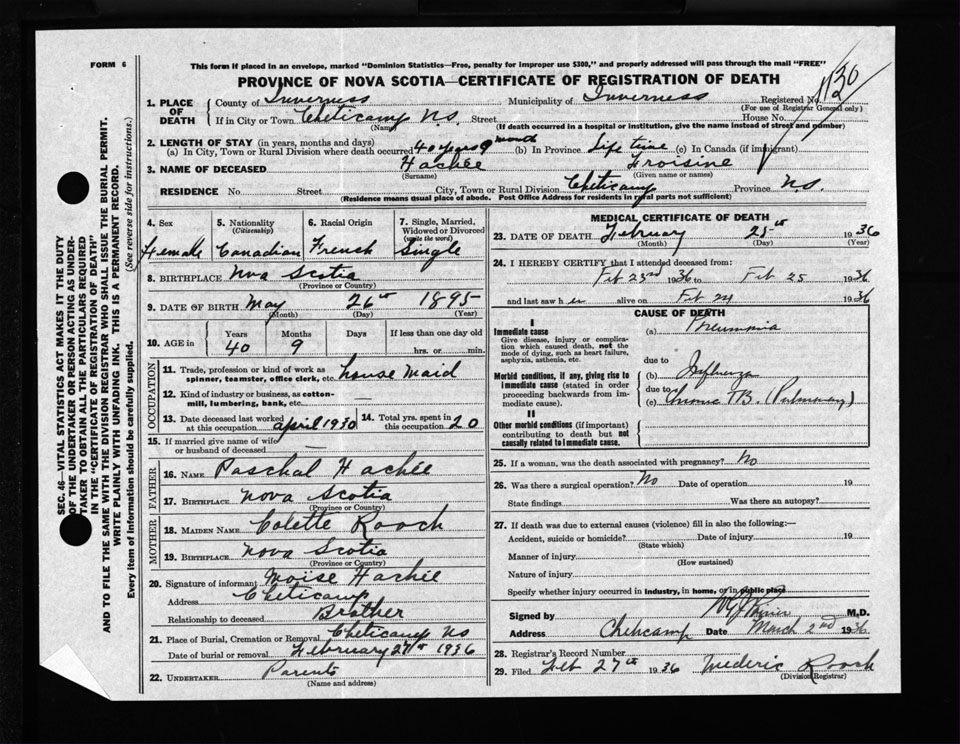 FORM 6
This form if placed in an envelope, marked "Dominion Statistics—Free, penalty for improper use $300," and properly addressed will pass through the mail "FREE"
PROVINCE OF NOVA SCOTIA—CERTIFICATE OF REGISTRATION OF DEATH
1. PLACE OF DEATH
County of Inverness Municipality of Inverness Registered No.
(For use of Registrar General only)
If in City or Town Cheticamp N.S. Street House No.
(Name) (If death occurred in a hospital or institution, give the name instead of street and number)
2. LENGTH OF STAY (in years, months and days)
(a) In City, Town or Rural Division where death occurred 40 years 9 month (b) In Province Life time (c) In Canada (if immigrant)
3. NAME OF DECEASED Hachée Froisine
(Surname) (Given name or names)
RESIDENCE No. Street City, Town or Rural Division Cheticamp Province N.S.
(Residence means usual place of abode. Post Office Address for residents in rural parts not sufficient)
4. Sex
Female
5. Nationality
(Citizenship)
Canadian
6. Racial Origin
French
7. Single, Married, Widowed or Divorced
(write the word)
Single
8. BIRTHPLACE Nova Scotia
(Province or Country)
9. DATE OF BIRTH May 26th 1895
(Month) (Day) (Year)
10. AGE in Years Months Days If less than one day old
40 9 hrs. or min.
OCCUPATION
11. Trade, profession or kind of work as
spinner, teamster, office clerk, etc. house maid
12. Kind of industry or business, as cotton-
mill, lumbering, bank, etc. —
13. Date deceased last worked
at this occupation April 1930
14. Total yrs. spent in
this occupation 20
15. If married give name of wife
or husband of deceased —
FATHER
16. NAME Paschal Hachée
17. BIRTHPLACE Nova Scotia
(Province or Country)
MOTHER
18. MAIDEN NAME Colette Roach
19. BIRTHPLACE Nova Scotia
(Province or Country)
20. Signature of informant Moïse Hachée
Address Cheticamp
Relationship to deceased Brother
21. Place of Burial, Cremation or Removal Cheticamp NS
Date of burial or removal February 27th 1936
22. UNDERTAKER Parents
(Name and address)
MEDICAL CERTIFICATE OF DEATH
23. DATE OF DEATH February 25th 1936
(Month) (Day) (Year)
24. I HEREBY CERTIFY that I attended deceased from:
Feb 23rd 1936 to Feb 25 1936
and last saw her alive on Feb 24 1936
CAUSE OF DEATH
I
Immediate cause
Give disease, injury or complica-
tion which caused death, not the
mode of dying, such as heart failure,
asphyxia, asthenia, etc.
(a) Pneumonia
due to
Morbid conditions, if any, giving rise to
immediate cause (stated in order
proceeding backwards from im-
mediate cause).
(b) Influenza
due to
(c) Chronic TB. (Pulmonary)
II
Other morbid conditions (if important)
contributing to death but not
causally related to immediate cause.
25. If a woman, was the death associated with pregnancy? No
26. Was there a surgical operation? No Date of operation 19
State findings Was there an autopsy?
27. If death was due to external causes (violence) fill in also the following:—
Accident, suicide or homicide? Date of injury 19
(State which)
Manner of injury
(How sustained)
Nature of injury
Specify whether injury occurred in industry, in home, or in public place
Signed by M.D.
Address Cheticamp Date March 2nd 1936
28. Registrar's Record Number
29. Filed Feb 27th 1936 Frederic Roach
(Division Registrar)
SEC. 46—VITAL STATISTICS ACT MAKES IT THE DUTY
OF THE UNDERTAKER OR PERSON ACTING AS UNDER-
TAKER TO OBTAIN ALL THE PARTICULARS REQUIRED
IN THE "CERTIFICATE OF REGISTRATION OF DEATH"
AND TO FILE THE SAME WITH THE DIVISION REGISTRAR WHO SHALL ISSUE THE BURIAL PERMIT.
WRITE PLAINLY WITH UNFADING INK. THIS IS A PERMANENT RECORD.
Every item of information should be carefully supplied. (See reverse side for instructions.)